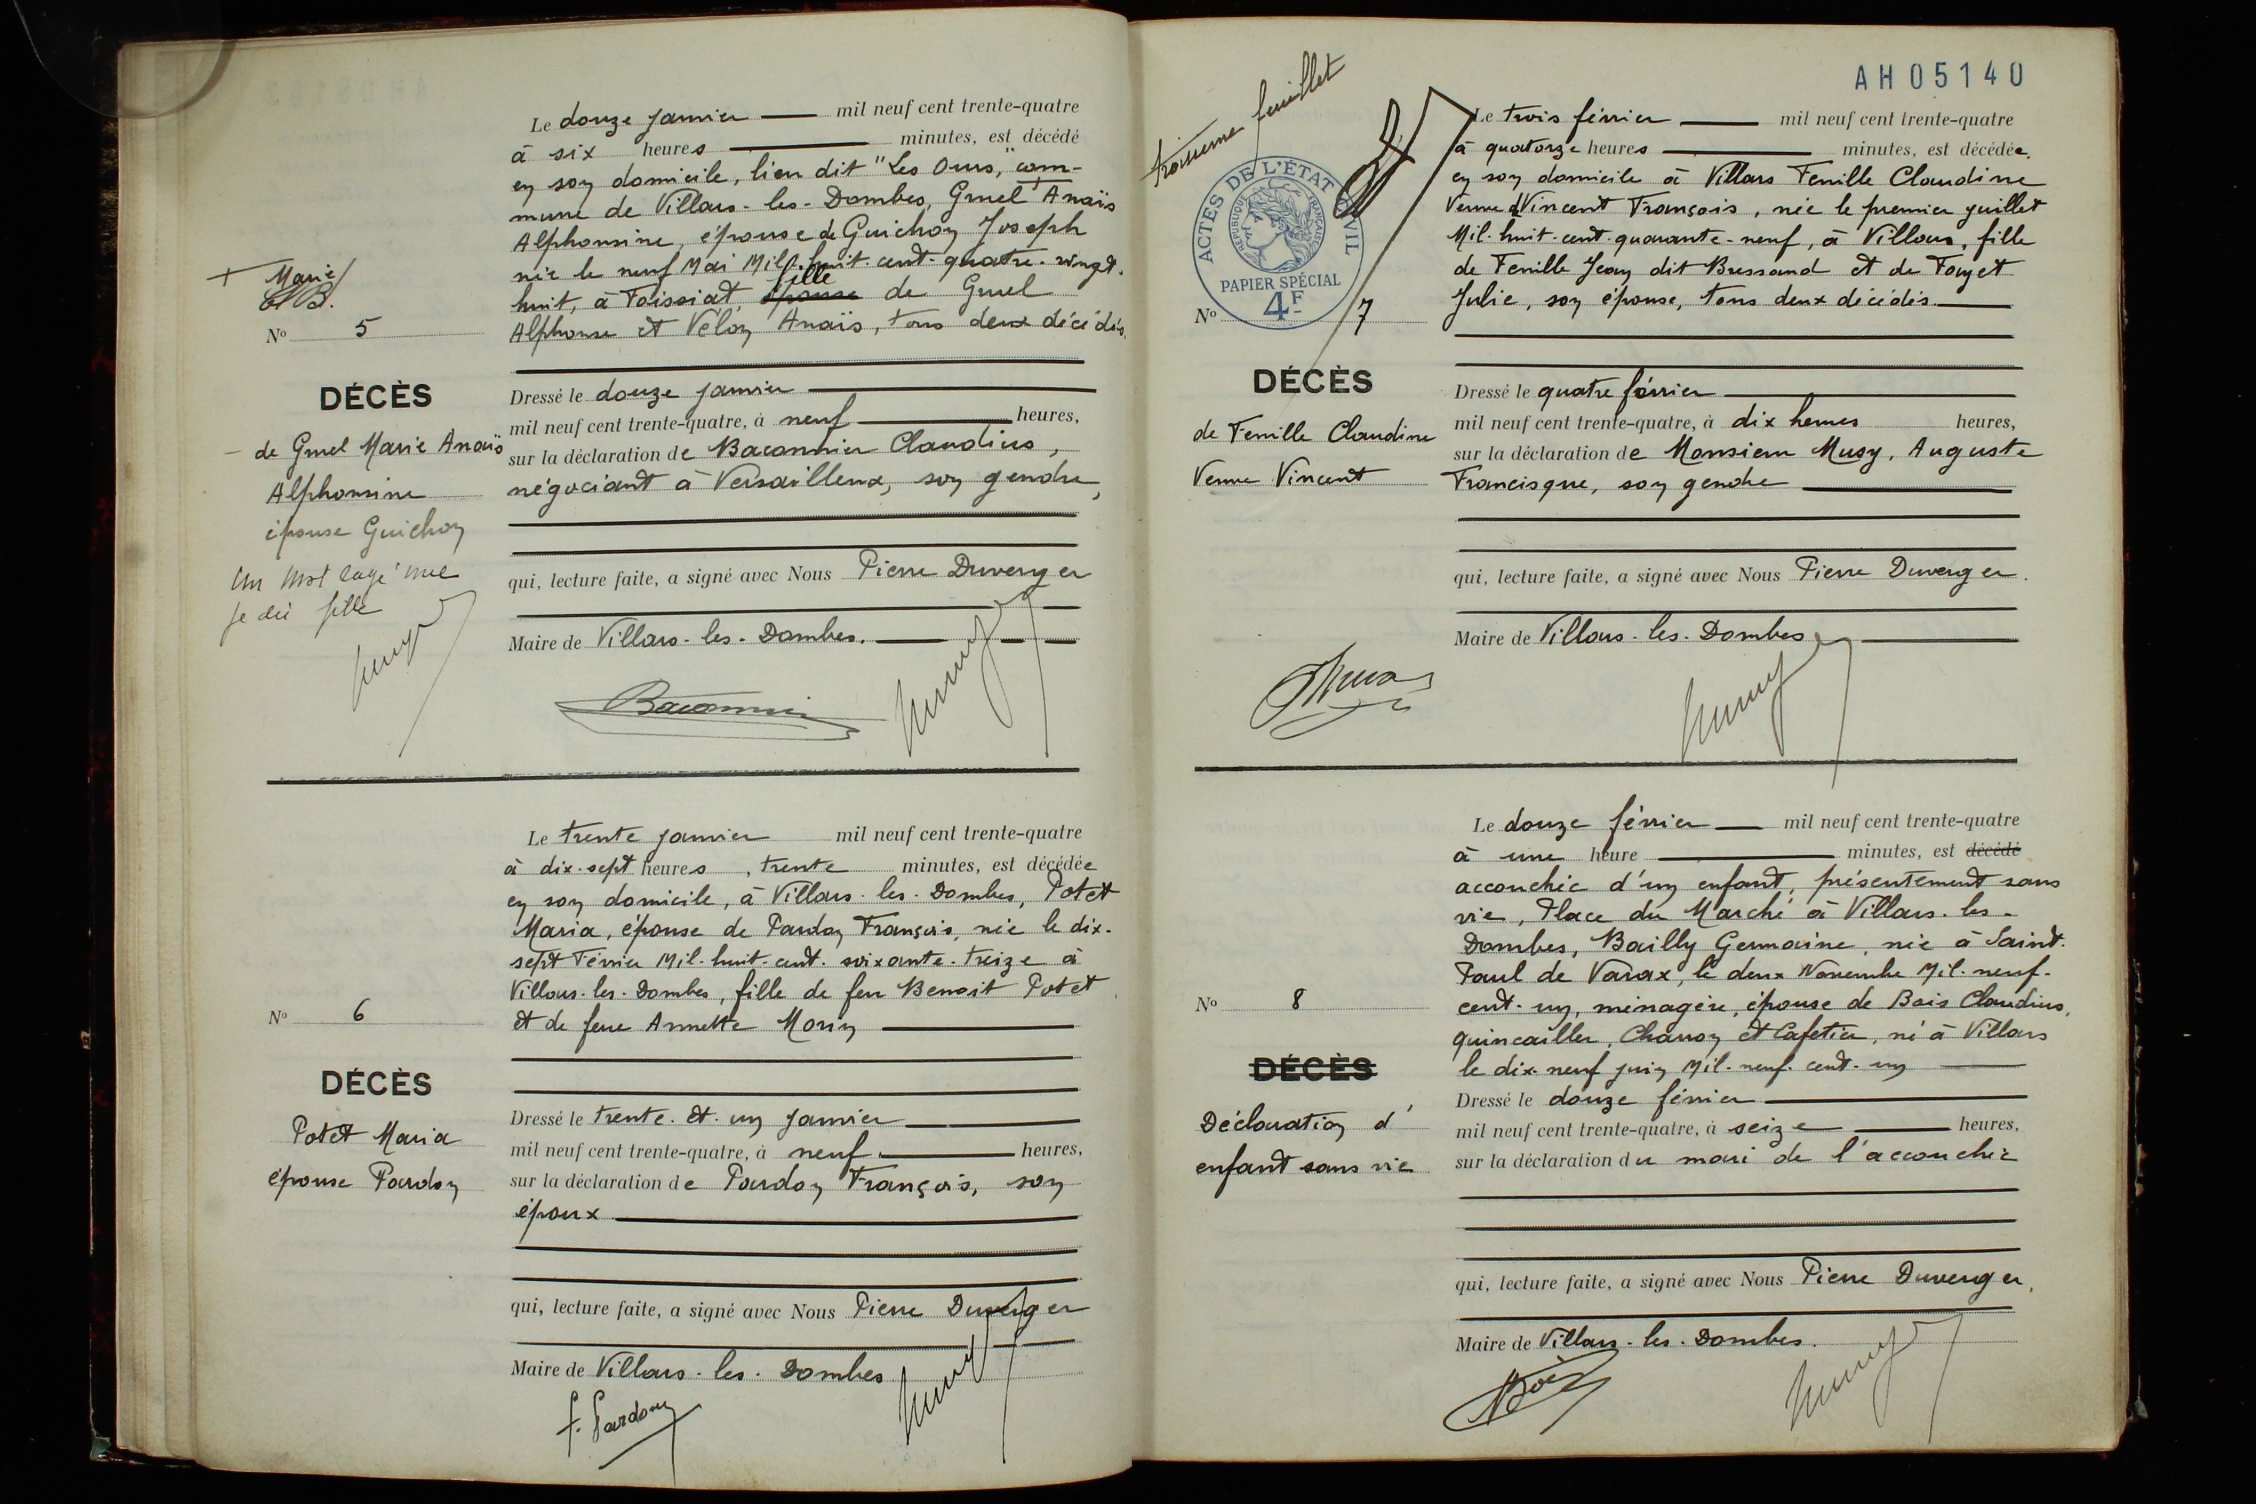 Le douze janvier mil neuf cent trente-quatre
à six heures minutes, est décédé
en son domicile, lieu dit "Les Ours," com-
mune de Villars-les-Dombes, Gruel Anaïs
Alphonsine, épouse de Guichon Joseph
née le neuf Mai Mil-huit-cent-quatre-vingt-
fille
huit, à Foissiat, épouse de Gruel
Alphonse et Vélon Anaïs, tous deux décédés.
+ Marie
Nº 5
DÉCÈS
de Gruel Marie Anaïs
Alphonsine
épouse Guichon
Un mot rayé nul
je dis fille
Dressé le douze janvier
mil neuf cent trente-quatre, à neuf heures,
sur la déclaration de Baconnier Claudius,
négociant à Versailleux, son gendre,
qui, lecture faite, a signé avec Nous Pierre Duverger
Maire de Villars-les-Dombes.
Baconnier
Le trente janvier mil neuf cent trente-quatre
à dix-sept heures, trente minutes, est décédée
en son domicile, à Villars-les-Dombes, Potet
Maria, épouse de Pardon François, née le dix-
sept Février Mil-huit-cent-soixante-treize à
Villars-les-Dombes, fille de feu Benoit Potet
et de feue Annette Morin
Nº 6
DÉCÈS
Potet Maria
épouse Pardon
Dressé le trente-et-un janvier
mil neuf cent trente-quatre, à neuf heures,
sur la déclaration de Pardon François, son
époux
qui, lecture faite, a signé avec Nous Pierre Duverger
Maire de Villars-les-Dombes
f. Pardon
AH05140
troisième feuillet
ACTES DE L'ÉTAT CIVIL
RÉPUBLIQUE FRANÇAISE
PAPIER SPÉCIAL
4F
Le trois février mil neuf cent trente-quatre
à quatorze heures minutes, est décédée,
en son domicile à Villars Feuille Claudine
Veuve d'Vincent François, née le premier juillet
Mil-huit-cent-quarante-neuf, à Villars, fille
de Feuille Jean dit Bressand et de Fouget
Julie, son épouse, tous deux décédés
Nº 7
DÉCÈS
de Feuille Claudine
Veuve Vincent
Dressé le quatre février
mil neuf cent trente-quatre, à dix heures heures,
sur la déclaration de Monsieur Musy, Auguste
Francisque, son gendre
qui, lecture faite, a signé avec Nous Pierre Duverger.
Maire de Villars-les-Dombes
Le douze février mil neuf cent trente-quatre
à une heure minutes, est décédé
accouchée d'un enfant, présentement sans
vie, Place du Marché à Villars-les-
Dombes, Bailly Germaine, née à Saint-
Paul de Varax, le deux Novembre Mil-neuf-
cent-un, ménagère, épouse de Bois Claudius,
quincailler, Charron et Cafetier, né à Villars
le dix-neuf juin Mil-neuf-cent-un
Nº 8
DÉCÈS
Déclaration d'
enfant sans vie
Dressé le douze février
mil neuf cent trente-quatre, à seize heures,
sur la déclaration du mari de l'accouchée
qui, lecture faite, a signé avec Nous Pierre Duverger,
Maire de Villars-les-Dombes.